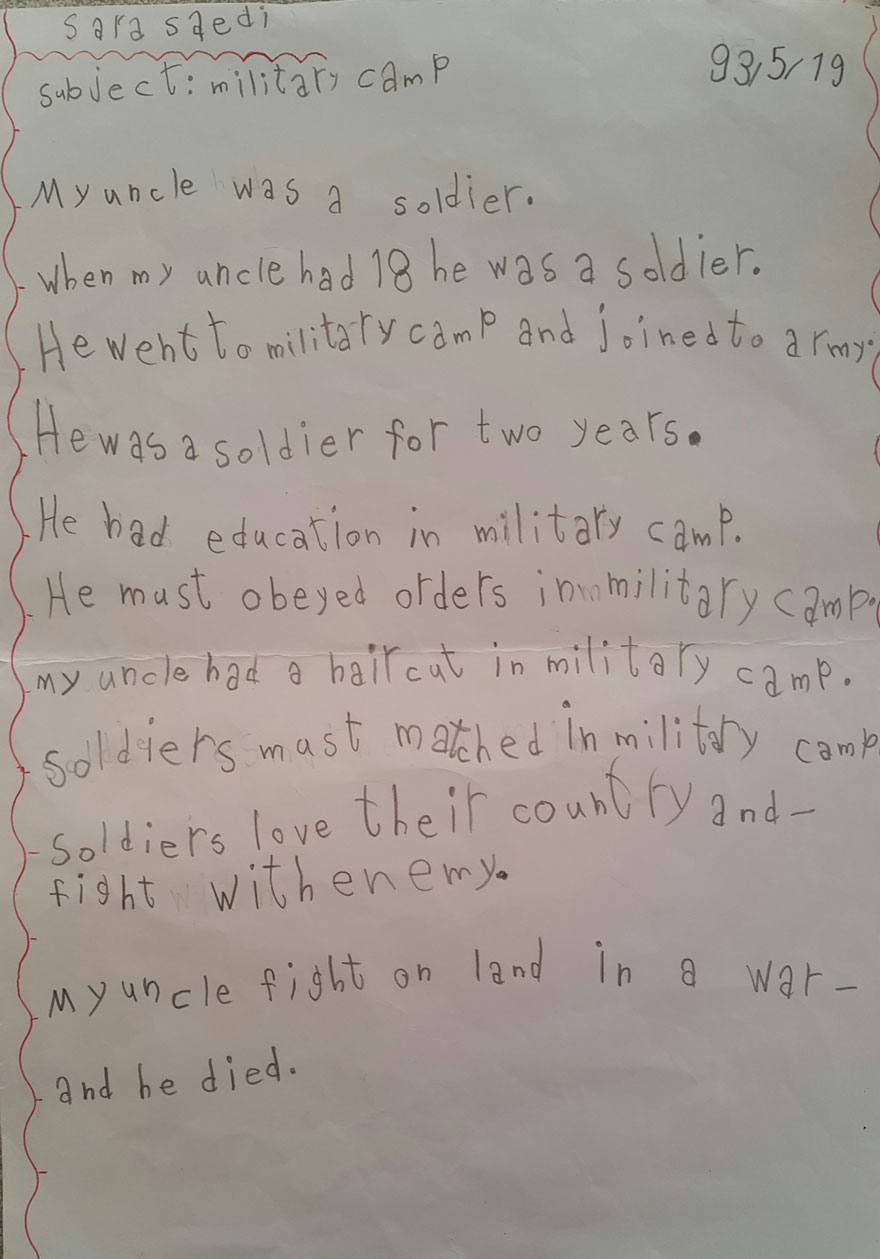 sara saedi
subject: military camp
93/5/19
My uncle was a soldier.
When my uncle had 18 he was a soldier.
He went to military camp and joined to army.
He was a soldier for two years.
He had education in military camp.
He must obeyed orders in military camp.
my uncle had a haircut in military camp.
Soldiers must matched in military camp
Soldiers love their country and-
fight with enemy.
My uncle fight on land in a war-
and he died.